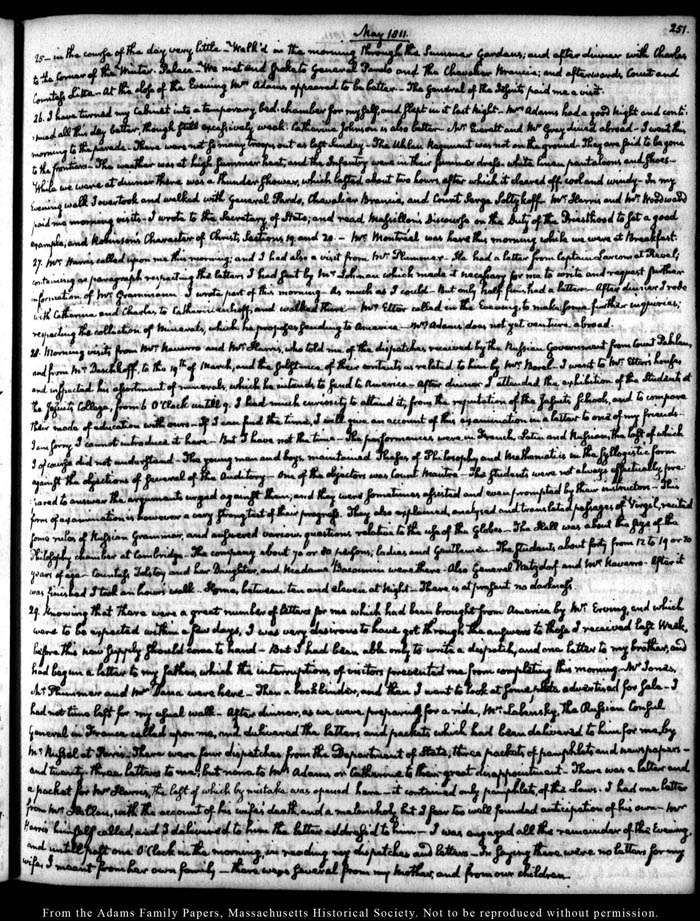 May 1811.
251.
25 - in the course of the day very little - Walk'd in the morning through the Summer Gardens; and after dinner with Charles
to the corner of the Winter Palace - We met and spoke to General Pardo and the Chevalier Brancia; and afterwards Count and
Countess Litta - At the close of the Evening Mrs Adams appeared to be better - The General of the Jesuits paid me a visit.
26. I have turned my Cabinet into a temporary bed-chamber for myself, and slept in it last Night - Mrs Adams had a good Night and conti-
nued all this day better, though still excessively weak. Catherine Johnson is also better - Mr Everett and Mr Gray dined abroad - I went this
morning to the parade - There were not so many troops out as last Sunday - The Uhlan Regiment was not on the ground. They are said to be gone
to the frontiers - The weather was at high summer heat, and the Infantry were in their summer dress - white linen pantaloons and shoes -
While we were at dinner there was a thunder shower, which lasted about two hours, after which it cleared off cool and windy - In my
Evening walk I overtook and walked with General Pardo, Chevalier Brancia, and Count Serge Soltykoff - Mr Harris and Mr Woodward
paid me morning visits - I wrote to the Secretary of State; and read Massillon's Discourse on the Duty of the Priesthood to set a good
example, and Robinson's Character of Christ, Sections 19. and 20. - Mr Montréal was here this morning while we were at Breakfast.
27. Mr Harris called upon me this morning; and I had also a visit from Mr Plummer. He had a letter from Captain at Revel,
containing a paragraph respecting the letters I had sent by Mr Lohman which made it necessary for me to write and request further
information of Mr - I wrote part of this morning - As much as I could - But only half finished a letter - After dinner I rode
with Catherine and Charles, to Catherinenhoff, and walked there - Mr Elter called in the Evening to make some further enquiries,
respecting the collection of Minerals, which he proposes sending to America - Mrs Adams does not yet venture abroad.
28. Morning visits from Mr Navarro and Mr Harris, who told me of the dispatches received by the Russian Government from Count Pahlen,
and from Mr Daschkoff, to the 19th of March, and the substance of their contents as related to him by Mr I went to Mr Elter's house
and inspected his assortment of minerals, which he intends to send to America - After dinner I attended the exhibition of the Students at
the Jesuits College, from 6 O'Clock untill 9. I had much curiosity to attend it, from the reputation of the Jesuits Schools, and to compare
their mode of education with ours - If I can find the time, I will give an account of this examination in a letter to one of my friends -
I am sorry I cannot introduce it here - But I have not the time - The performances were in French, Latin and Russian, the last of which
I of course did not understand - The young men and boys maintained Theses of Philosophy and Mathematics in the syllogistic form
against the objections of several of the Auditory - One of the objectors was Count Maistre - The students were not always effectually pre-
pared to answer the arguments urged against them; and they were sometimes assisted and even prompted by their instructors - This
form of examination is however a very strong test of their progress. They also explained, analysed and translated passages of Virgil, recited
some rules of Russian Grammar, and answered various questions relative to the use of the Globes - The Hall was about the size of the
Philosophy chamber at Cambridge - The company about 70 or 80 persons; ladies and Gentlemen - The students about forty from 12 to 19 or 20
years of age - Countess Tolstoy and her Daughter, and Madame were there - Also General and Mr Navarro - After it
was finished I took an hours walk - Home, between ten and eleven at Night - There is at present no darkness.
29. Knowing that there were a great number of letters for me which had been brought from America by Mr Erving, and which
were to be expected within a few days, I was very desirous to have got through the answers to those I received last Week
before this new supply should come to hand - But I had been able only to write a dispatch, and one letter to my brother, and
had begun a letter to my father, which the interruptions of visitors prevented me from completing this morning - Mr Jones,
Mr Plummer and Mr Dana were here - Then a bookbinder, and then I went to look at some plate advertised for sale - I
had not time left for my usual walk - After dinner, as we were preparing for a ride, Mr Labensky, the Russian Consul
General in France called upon me, and delivered the letters and packets which had been delivered to him for me, by
Mr Russel at Paris - There were four dispatches from the Department of State, three packets of pamphlets and newspapers -
and twenty-three letters to me; but none to Mrs Adams or Catherine to their great disappointment - There was a letter and
a packet for Mr Harris, the last of which by mistake was opened here - it contained only pamphlets, of the Laws - I had one letter
from Mr with the account of his wife's death, and a melancholy, but I fear too well founded anticipation of his own - Mr
Harris himself called, and I delivered to him the letter address'd to him - I was engaged all the remainder of the Evening,
and untill past one O'Clock in the morning, in reading my dispatches and letters - In saying there were no letters for my
wife, I meant from her own family - there were several from my Mother, and from our children.
From the Adams Family Papers, Massachusetts Historical Society. Not to be reproduced without permission.